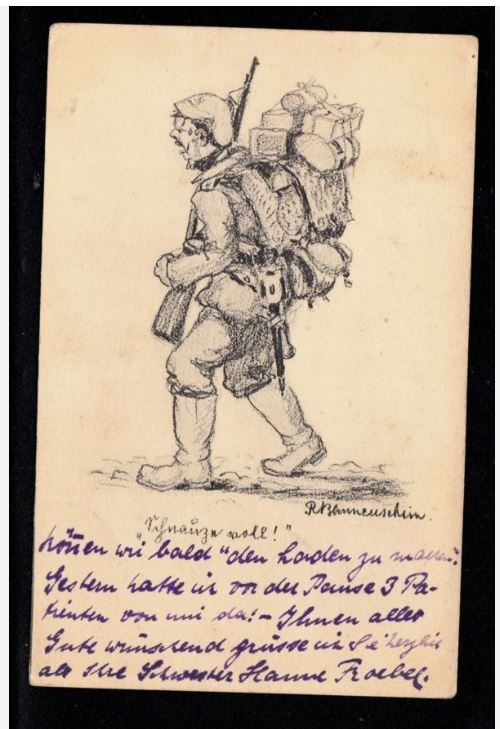 R. Blumenschein.
"Schnauze voll!"
können wir bald "den Laden zu machen".
Gestern hatte ich vor der Pause 3 Pa-
tienten von mir da! – Ihnen alles
Gute wünschend grüsse ich Sie herzlich
als Ihre Schwester Hanne Froebel.